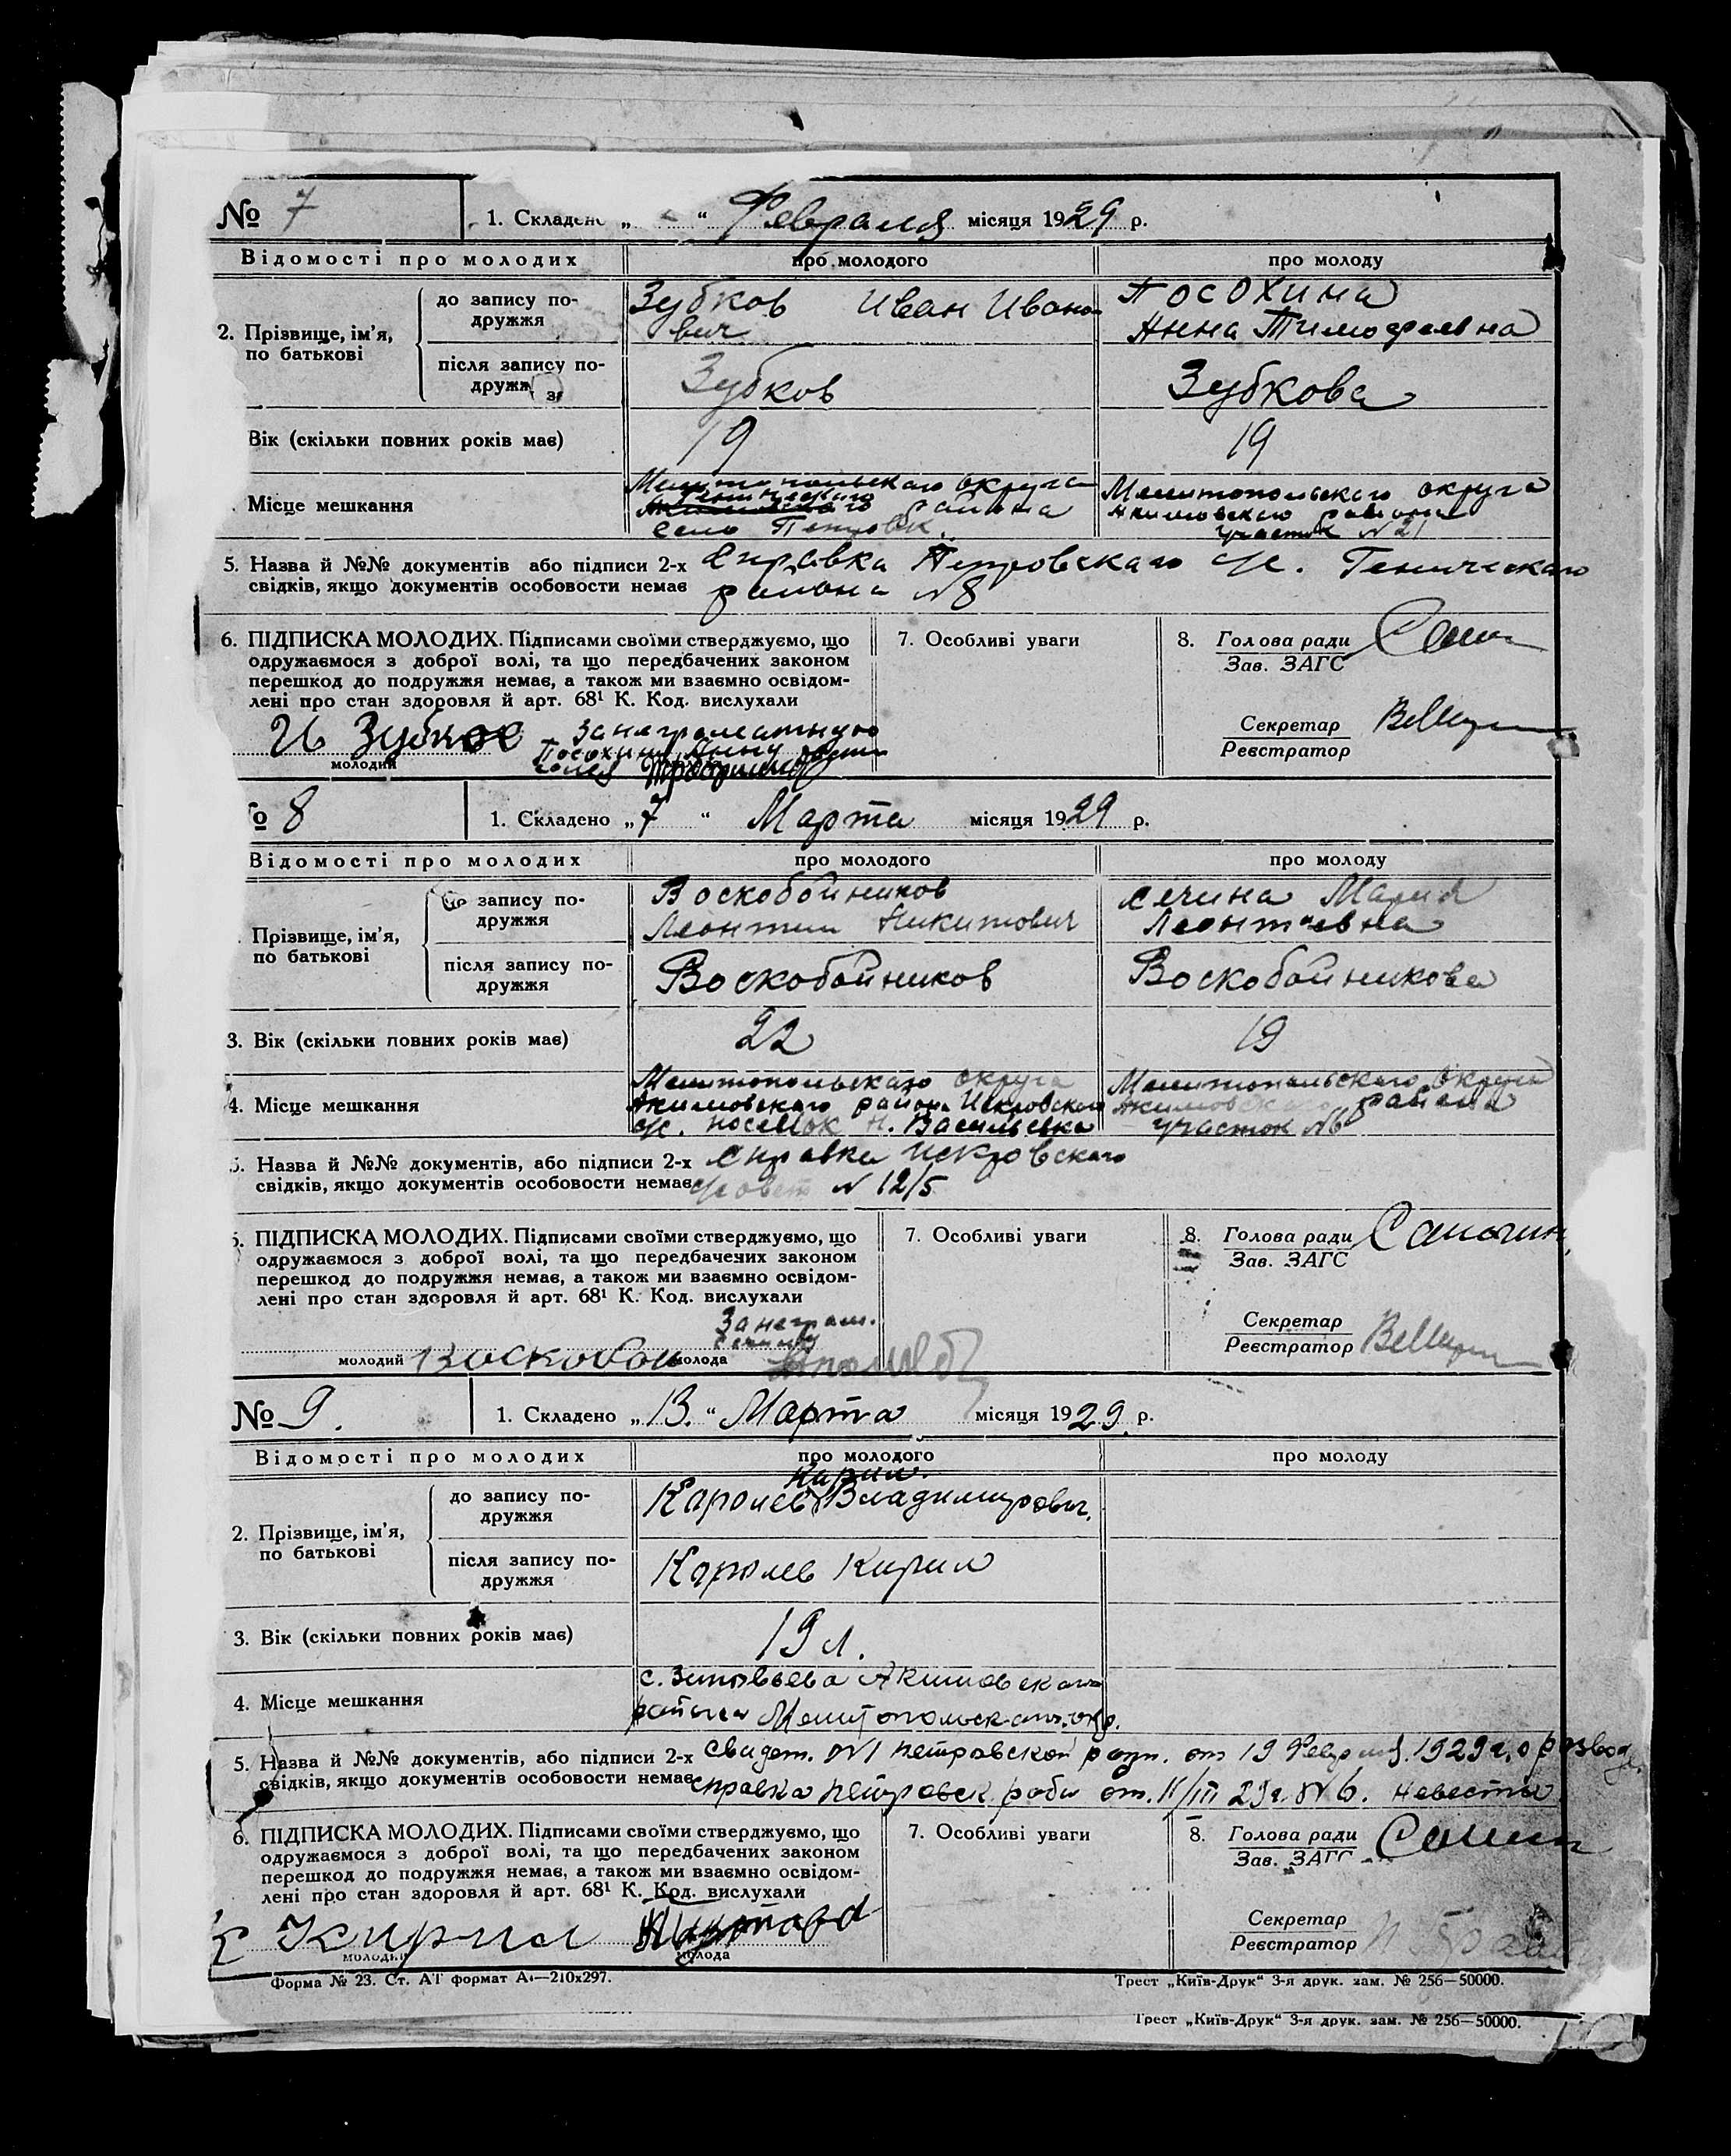 № 7
1. Складено „ “ Февраля місяця 1929 р.
Відомості про молодих про молодого про молоду
2. Прізвище, ім’я, по батькові
до запису подружжя
Зубков Иван Ивано-
вич
Посохина
Анна Тимофеевна
після запису по-
дружж
Зубков Зубкова
Вік (скільки повних років має) 19 19
Місце мешкання
Мелитопольскаго округа
Генического района
село Петровк.
Мелитопольскаго округа
Акимовскаго района
участок N 21
5. Назва й №№ документів або підписи 2-х Справка Петровскаго с/с. Геническаго
свідків, якщо документів особовости немає района N 8
6. ПІДПИСКА МОЛОДИХ. Підписами своїми стверджуємо, що
одружаємося з доброї волі, та що передбачених законом
перешкод до подружжя немає, а також ми взаємно освідом-
лені про стан здоровля й арт. 68¹ К. Код. вислухали
И Зубков За неграматную
Посохину Анну
молодий
7. Особливі уваги
8. Голова ради
Зав. ЗАГС
Секретар
Реєстратор
8
1. Складено „7“ Марта місяця 1929 р.
Відомості про молодих про молодого про молоду
Прізвище, ім’я,
по батькові
до запису по-
дружжя
Воскобойников
Леонтий Никитович
Сечина Мария
Леонтьевна
після запису по-
дружжя
Воскобойников Воскобойникова
3. Вік (скільки повних років має) 22 19
4. Місце мешкання
Мелитопольскаго округа
Акимовского района Искровского
с/с. поселок Н. Васильевка
Мелитопольскаго округа
Акимовскаго района
участок N6
5. Назва й №№ документів, або підписи 2-х Справка Искровскаго
свідків, якщо документів особовости немає с/совет N 12/5
6. ПІДПИСКА МОЛОДИХ. Підписами своїми стверджуємо, що
одружаємося з доброї волі, та що передбачених законом
перешкод до подружжя немає, а також ми взаємно освідом-
лені про стан здоровля й арт. 68¹ К. Код. вислухали
За неграм.
Сечину
молодий Воскобой молода
7. Особливі уваги
8. Голова ради
Зав. ЗАГС
Секретар
Реєстратор
№ 9.
1. Складено „13.“ Марта місяця 1929. р.
Відомості про молодих про молодого про молоду
2. Прізвище, ім’я,
по батькові
до запису по-
дружжя
Кирил.
Каролев Владимирович.
після запису по-
дружжя
Каролев Кирил
3. Вік (скільки повних років має) 19 л.
4. Місце мешкання
с. Зиновьева Акимовскаго
района Мелитопольскаго окр.
5. Назва й №№ документів, або підписи 2-х свидет. N1 петровской от 19 Февраля 1929 г. о развод
свідків, якщо документів особовости немає справка петровск. ради от. 11/III 29 г. N 6. невесты
6. ПІДПИСКА МОЛОДИХ. Підписами своїми стверджуємо, що
одружаємося з доброї волі, та що передбачених законом
перешкод до подружжя немає, а також ми взаємно освідом-
лені про стан здоровля й арт. 68¹ К. Код. вислухали
Кирил
молодий молода
7. Особливі уваги
8. Голова ради
Зав. ЗАГС
Секретар
Реєстратор
Форма № 23. Ст. А1 формат А4—210х297. Трест „Київ-Друк“ 3-я друк. зам. № 256—50000.
Трест „Київ-Друк“ 3-я друк. зам. № 256—50000.